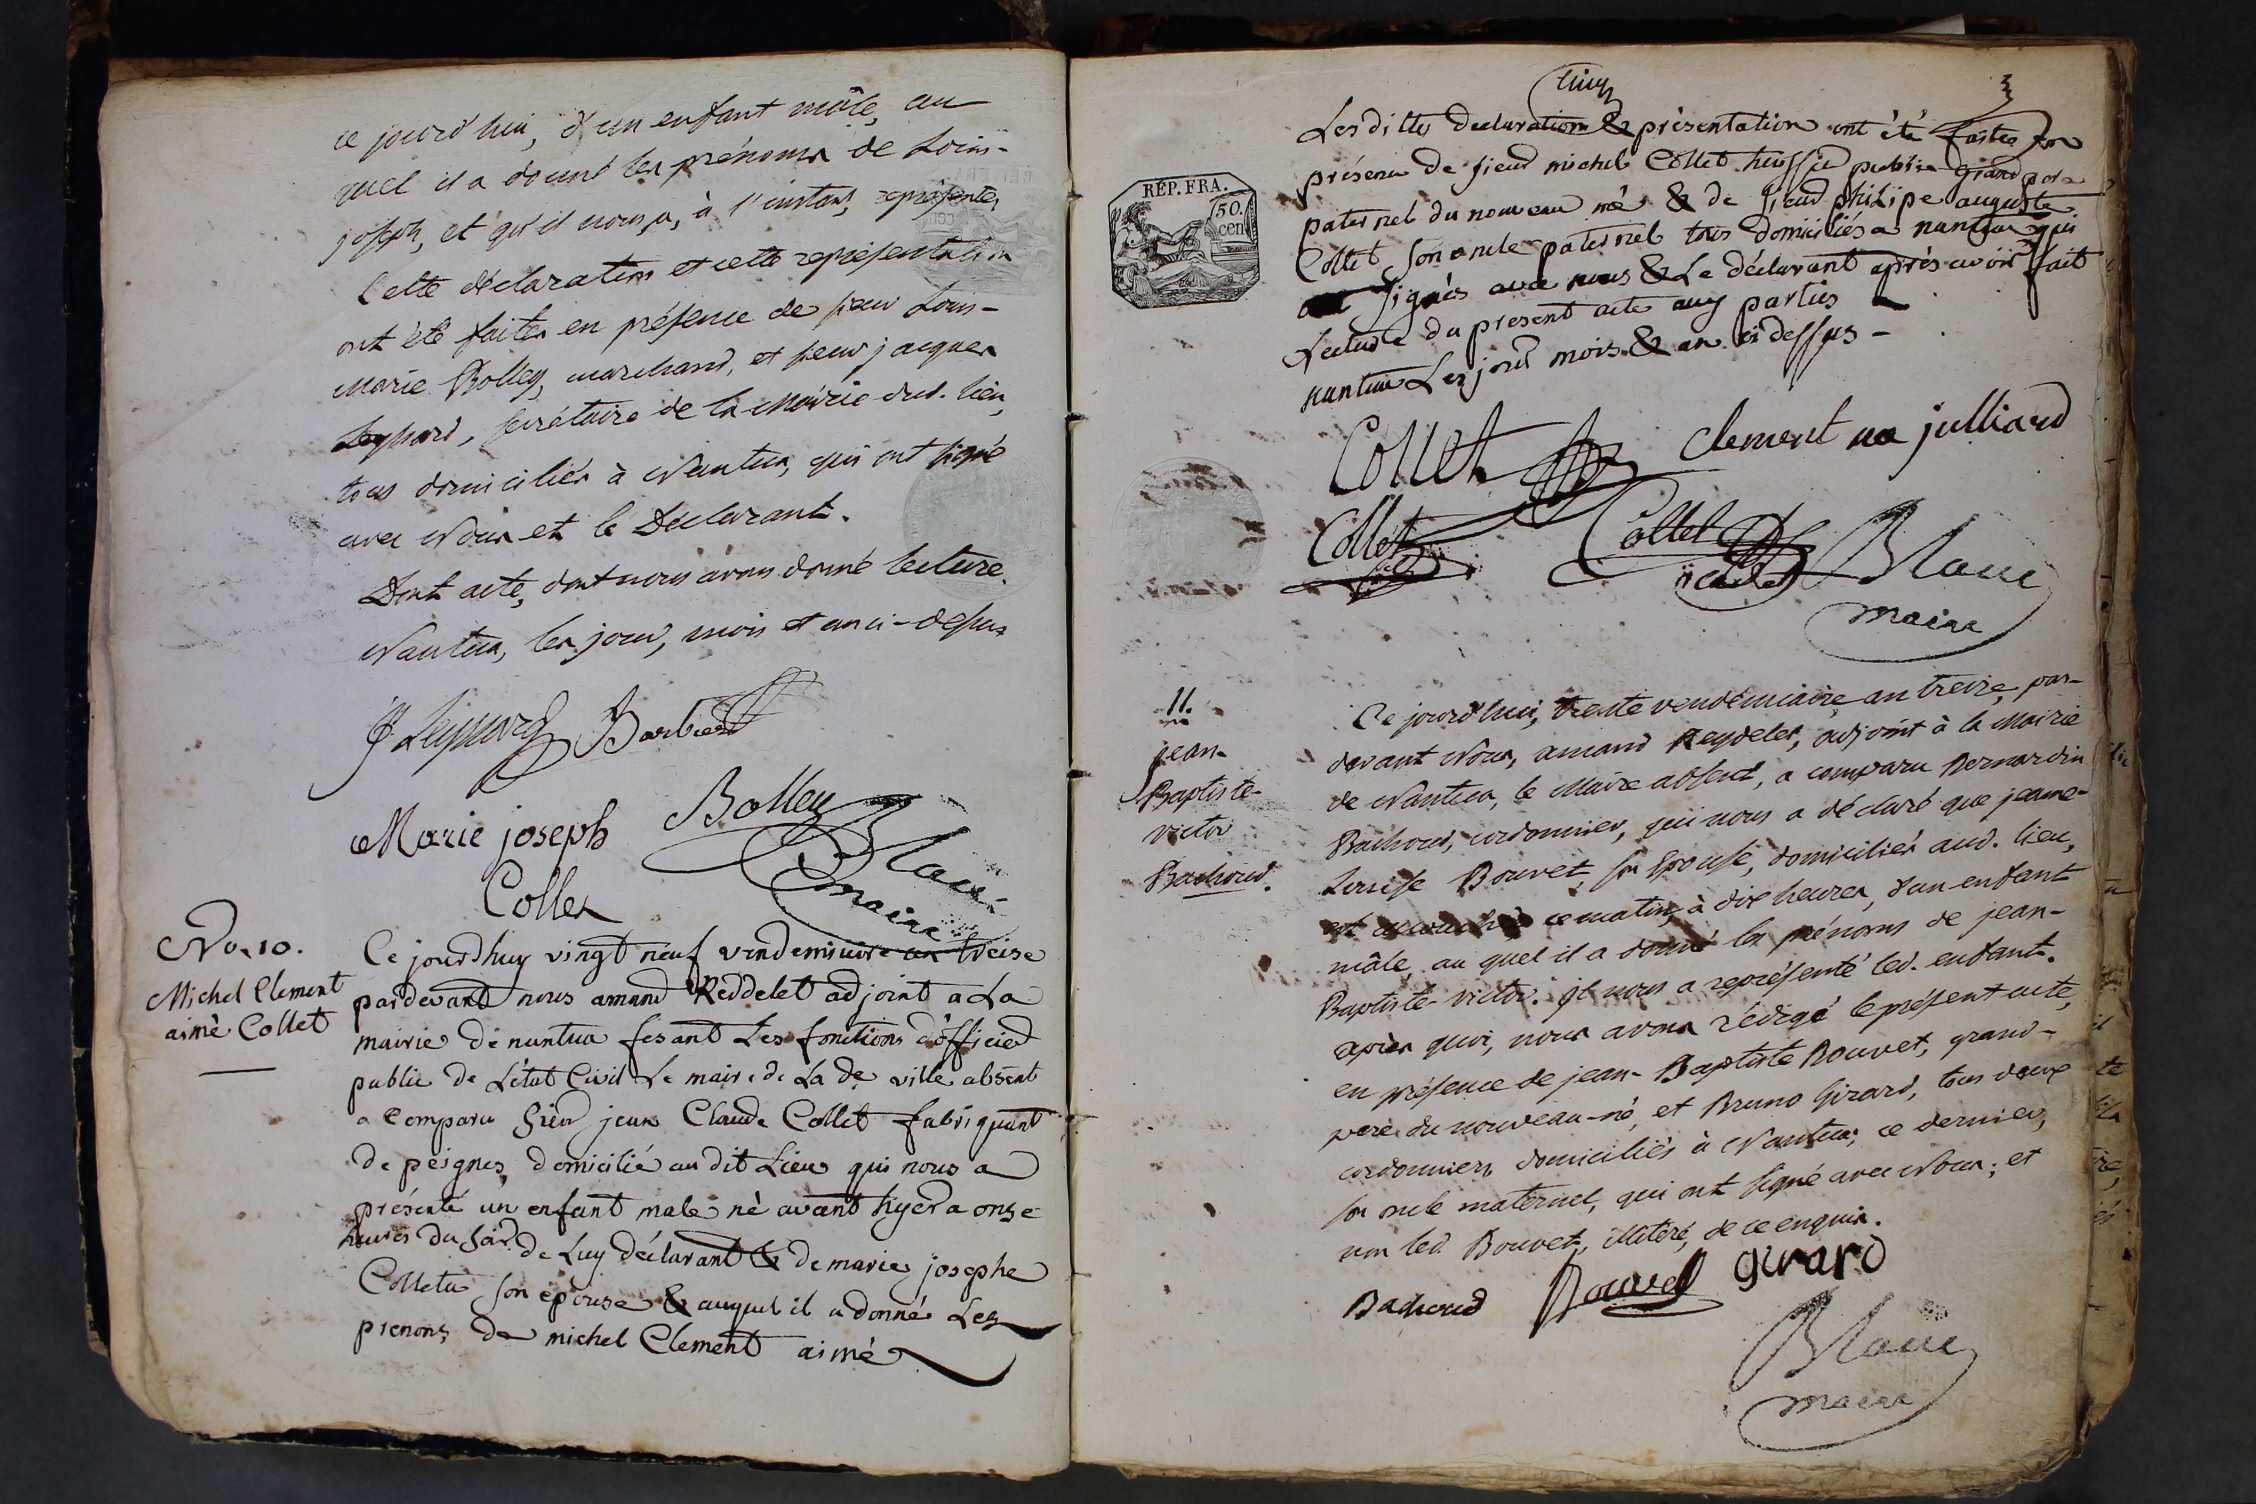 ce jourd'hui, d'un enfant mâle, au
quel il a donné les prénoms de Louis-
joseph, et qu'il nous a, à l'instant, représenté,
Cette déclaration et cette représentation
ont été faites en présence de sieur Louis-
Marie Bolley, marchand, et sieur jacques
Leyssard, secrétaire de la Mairie dud. lieu,
tous domiciliés à Nantua, qui ont signé
avec Nous et le Déclarant.
Dont acte, dont nous avons donné lecture.
Nantua, les jour, mois et an ci-dessus
J Leyssard Barbier
Marie joseph Bolley
Collet Blanc
maire
No. 10.
Michel Clement
aimé Collet
Ce jourdhuy vingt neuf vendemiaire an treise
pardevant nous amand Reddelet adjoint a La
mairie de nantua fesant Les fonctions d'officier
public de L'état Civil Le maire de La de ville absent
a Comparu Sieur jean Claude Collet fabriquant
de peignes domicilié au dit Lieu qui nous a
présenté un enfant male né avant hyer a onze
heures du soir de Luy déclarant & de marie josephe
Colleta son epouse & auquel il a donné Les
prenons de michel Clement aimé
cinq
Les dittes declaration & présentation ont été faites en
présence de sieur michel Collet huissier public grand pere
paternel du nouveau né & de Sieur philipe auguste
Collet son oncle paternel tous domiciliés a nantua qui
ont signés avec nous & Le déclarant après avoir fait
Lecture du present acte aux parties
nantua Les jour mois & an ci dessus -
RÉP. FRA.
50.
cen
Collet Clement na julliard
Collet Collet Blanc
maire
11.
jean-
Baptiste-
victor
Bachoud.
Ce jourd'hui, trente vendémiaire an treize, par-
devant Nous, amand Reydelet, adjoint à la Mairie
de Nantua, le Maire absent, a comparu Bernardin
Bachoud, cordonnier, qui nous a déclaré que jeanne-
Louise Bouvet, son Epouse, domiciliés aud. lieu,
est accouchée ce matin, à dix heures, d'un enfant
mâle, au quel il a donné les prénoms de jean-
Baptiste-victor. Il nous a représenté led. enfant.
après quoi, nous avons rédigé le présent acte,
en présence de jean-Baptiste Bouvet, grand-
père du nouveau-né, et Bruno Girard, tous deux
cordonniers domiciliés à Nantua; ce dernier,
son oncle maternel, qui ont signé avec Nous; et
non led. Bouvet, illitéré, de ce enquis.
Bachoud Bouvet girard
Blanc
maire